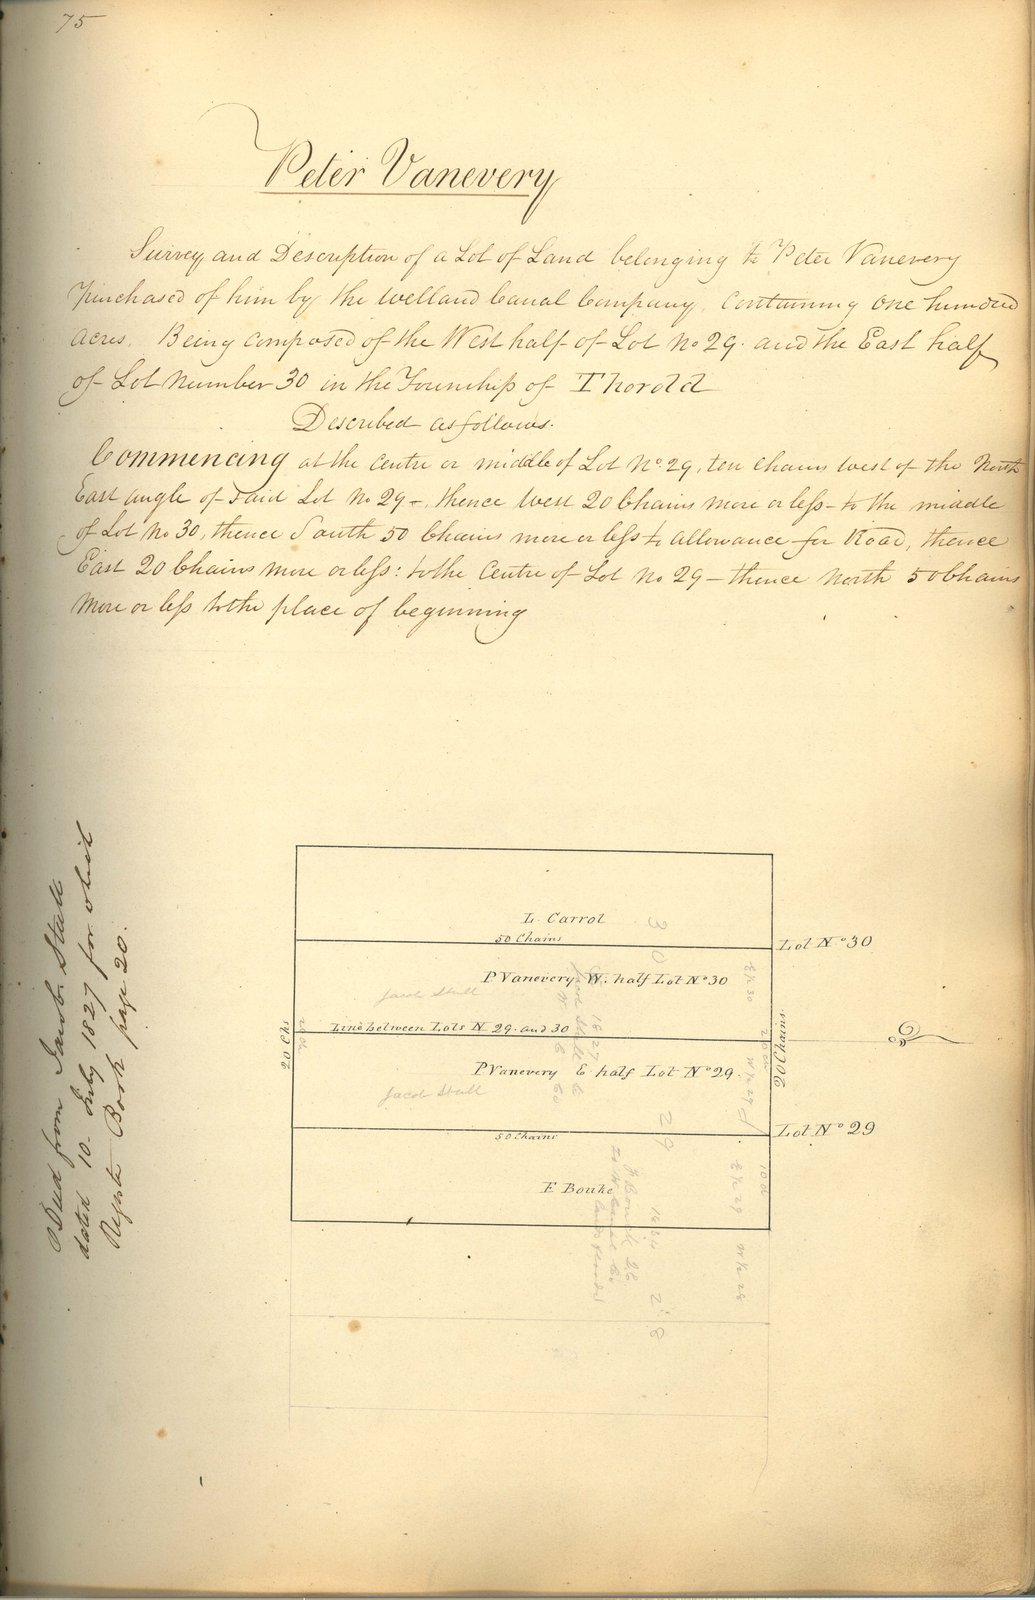 75
Peter Vanevery
Survey and Description of a Lot of Land belonging to Peter Vanevery
Purchased of him by the Welland Canal Company, Containing one hundred
acres. Being composed of the West half of Lot No 29. and the East half
of Lot Number 30 in the Township of Thorold
Described as follows.
Commencing at the centre or middle of Lot No. 29, ten chains west of the North
East angle of said Lot No 29 -, thence West 20 Chains more or less - to the middle
of Lot No 30, thence South 50 Chains more or less to allowance for Road, thence
East 20 Chains more or less: to the Centre of Lot No 29 - thence North 50 Chains
more or less to the place of beginning
Deed from Jacob Stull
dated 10 July 1827 for which
Register Book page 20.
L. Carrol
50 Chains
Lot No 30
P Vanevery W. half Lot No 30
Jacob Stull
Line between Lots N 29. and 30
20 Chs
20 Chains
P Vanevery E half Lot No 29.
Jacob Stull
50 Chains
Lot No 29
F Bouke
30
29
28
E 1/2 30
W 1/2 29
E 1/2 29
W 1/2 28
1827
1834